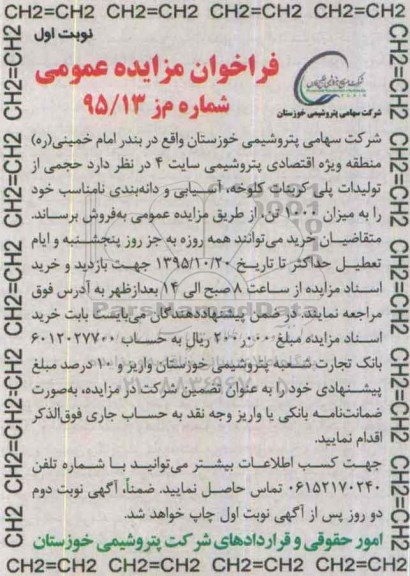 CH2=CH2 CH2=CH2 CH2=CH2 CH2=CH2 CH2=CH2
نوبت اول
فراخوان مزایده عمومی
شماره مز ۹۵/۱۳
شرکت سهامی پتروشیمی خوزستان
شرکت سهامی پتروشیمی خوزستان واقع در بندر امام خمینی(ره)
منطقه ویژه اقتصادی پتروشیمی سایت ۴ در نظر دارد حجمی از
تولیدات پلی کربنات کلوخه، آسیابی و دانه‌بندی نامناسب خود
را به میزان ۱۰۰۰ تن، از طریق مزایده عمومی به‌فروش برساند.
متقاضیان خرید می‌توانند همه روزه به جز روز پنجشنبه و ایام
تعطیل حداکثر تا تاریخ ۱۳۹۵/۱۰/۲۰ جهت بازدید و خرید
اسناد مزایده از ساعت ۸ صبح الی ۱۴ بعدازظهر به آدرس فوق
مراجعه نمایند. در ضمن پیشنهاددهندگان می‌بایست بابت خرید
اسناد مزایده مبلغ ۲۰۰٫۰۰۰ ریال به حساب ۶۰۱۳۰۲۷۷۰۰
بانک تجارت شعبه پتروشیمی خوزستان واریز و ۱۰ درصد مبلغ
پیشنهادی خود را به عنوان تضمین شرکت در مزایده، به‌صورت
ضمانت‌نامه بانکی یا واریز وجه نقد به حساب جاری فوق‌الذکر
اقدام نمایید.
جهت کسب اطلاعات بیشتر می‌توانید با شماره تلفن
۰۶۱۵۲۱۷۰۲۴۰ تماس حاصل نمایید. ضمناً، آگهی نوبت دوم
دو روز پس از آگهی نوبت اول چاپ خواهد شد.
امور حقوقی و قراردادهای شرکت پتروشیمی خوزستان
CH2=CH2 CH2=CH2 CH2=CH2 CH2=CH2 CH2=CH2